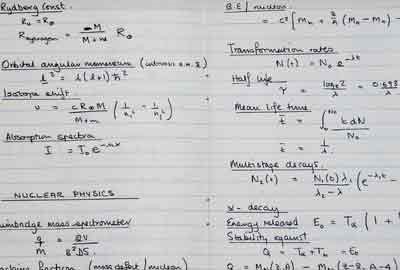 Rydberg Const.
R∞ = R∞
R hydrogen = M / M + m R∞
Orbital angular momentum (
l² = l(l+1) ħ²
Isotope shift.
ν = c R∞ M / M + m ( 1/n₁² - 1/n₂² )
Absorption spectra
I = I₀ e^-nαx
NUCLEAR PHYSICS
Bainbridge mass spectrometer
q / M = 2V / B²DS.
fraction (mass defect / nucleon)
B.E / nucleon
= c² [ Mn + Z/A (MH - Mn) -
Transformation rates
N(t) = N₀ e^-λt
Half life
τ = loge 2 / λ = 0.693 / λ
Mean life time
t̄ = ∫₀^N₀ t dN / N₀
t̄ = 1/λ
Multistage decays.
N₂(t) = N₁(0) λ₁ / λ₂ - λ ( e^-λ₁t -
α - decay
Energy released E₀ = Tα ( 1 +
Stability against
Q = Tα + Tb = E₀
Q = M (Z, A) - M (Z-2, A-4)